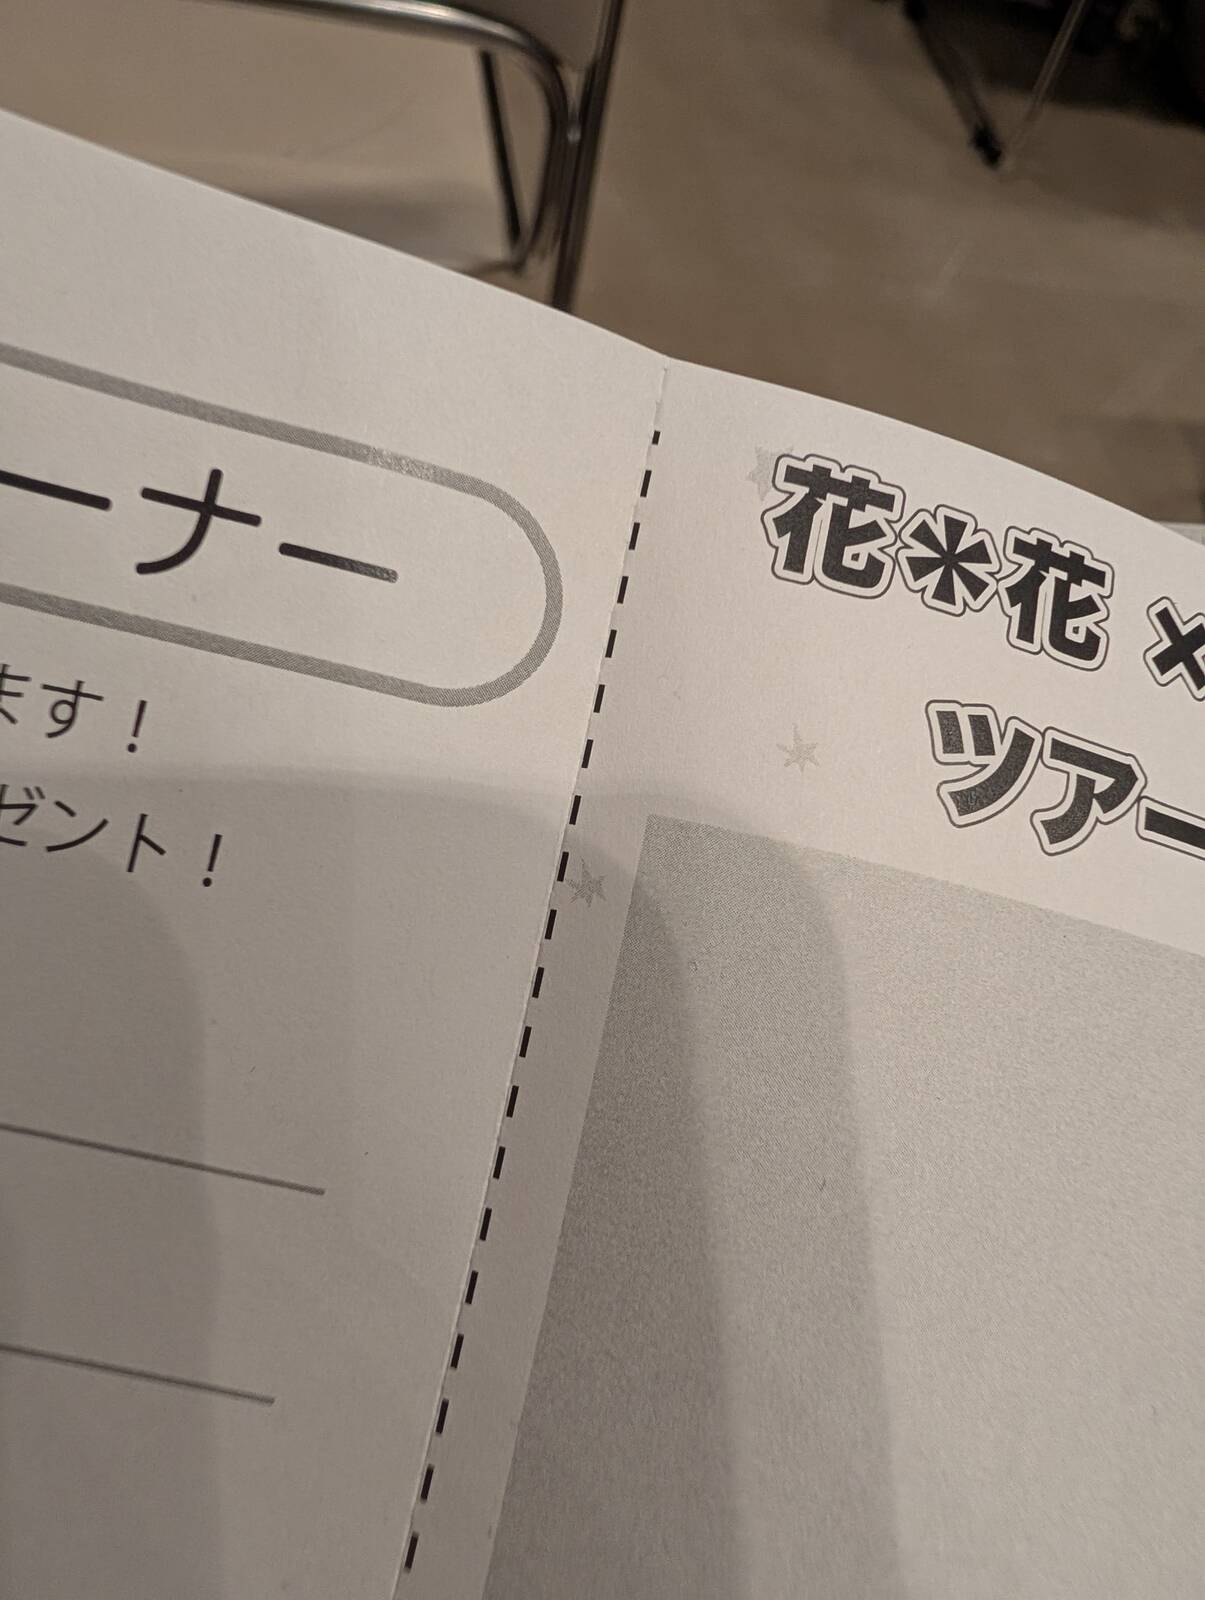 ーナー
ます！
ゼント！
花*花 ×
ツアー